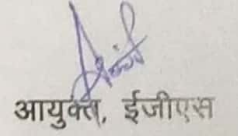 आयुक्त, ईजीएस